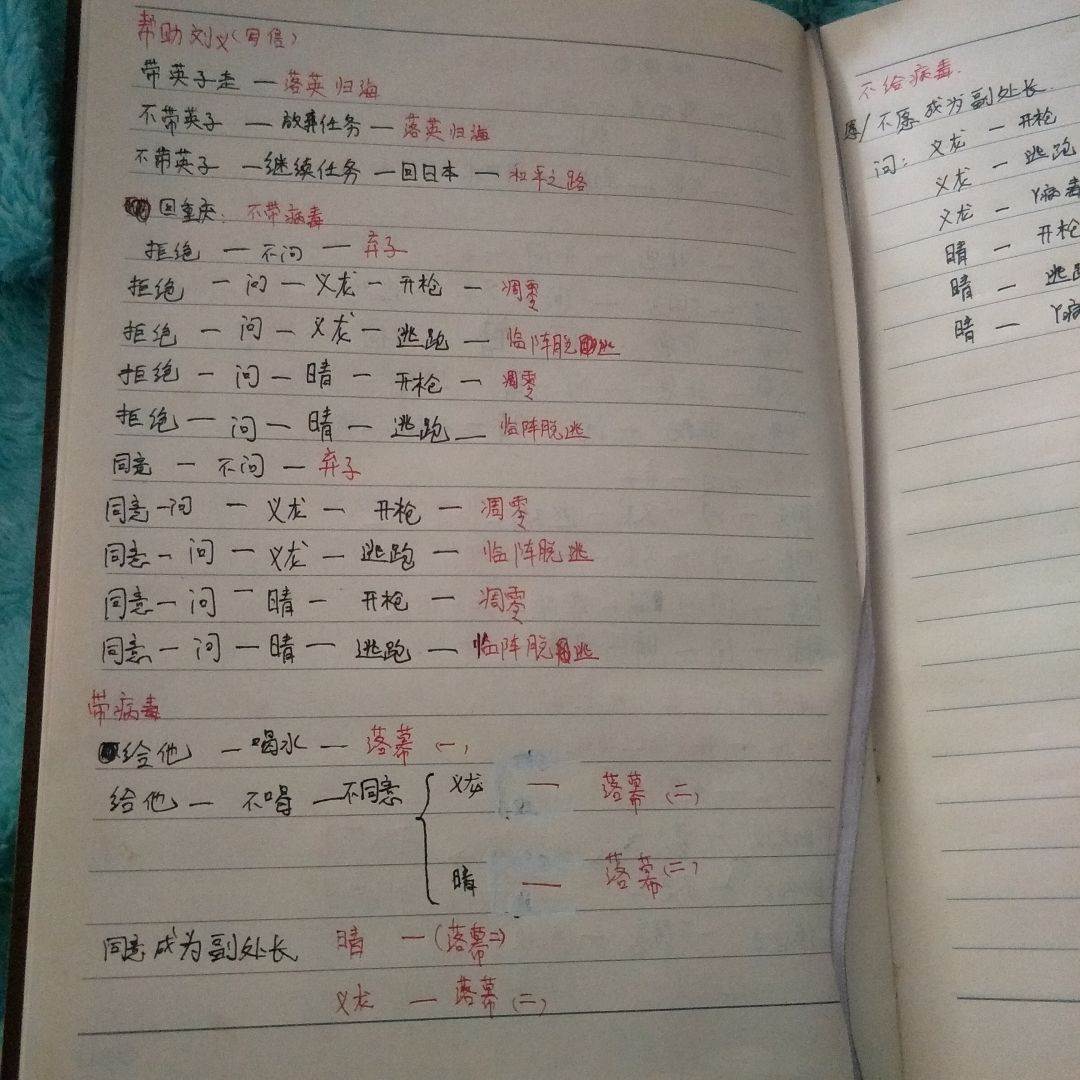 帮助刘义(写信)
带英子走 — 落英归海
不带英子 — 放弃任务 — 落英归海
不带英子 — 继续任务 — 回日本 — 和平之路
回重庆: 不带病毒
拒绝 — 不问 — 弃子
拒绝 — 问 — 义龙 — 开枪 — 凋零
拒绝 — 问 — 义龙 — 逃跑 — 临阵脱逃
拒绝 — 问 — 晴 — 开枪 — 凋零
拒绝 — 问 — 晴 — 逃跑 — 临阵脱逃
同意 — 不问 — 弃子
同意 — 问 — 义龙 — 开枪 — 凋零
同意 — 问 — 义龙 — 逃跑 — 临阵脱逃
同意 — 问 — 晴 — 开枪 — 凋零
同意 — 问 — 晴 — 逃跑 — 临阵脱逃
带病毒
给他 — 喝水 — 落幕(一)
给他 — 不喝 — 不同意 { 义龙 — 落幕(二)
晴 — 落幕(二)
同意成为副处长 晴 — (落幕二)
义龙 — 落幕(二)
不给病毒.
愿/不愿成为副处长.
问: 义龙 — 开枪
义龙 — 逃跑
义龙 — Y病毒
晴 — 开枪
晴 — 逃
晴 — Y病